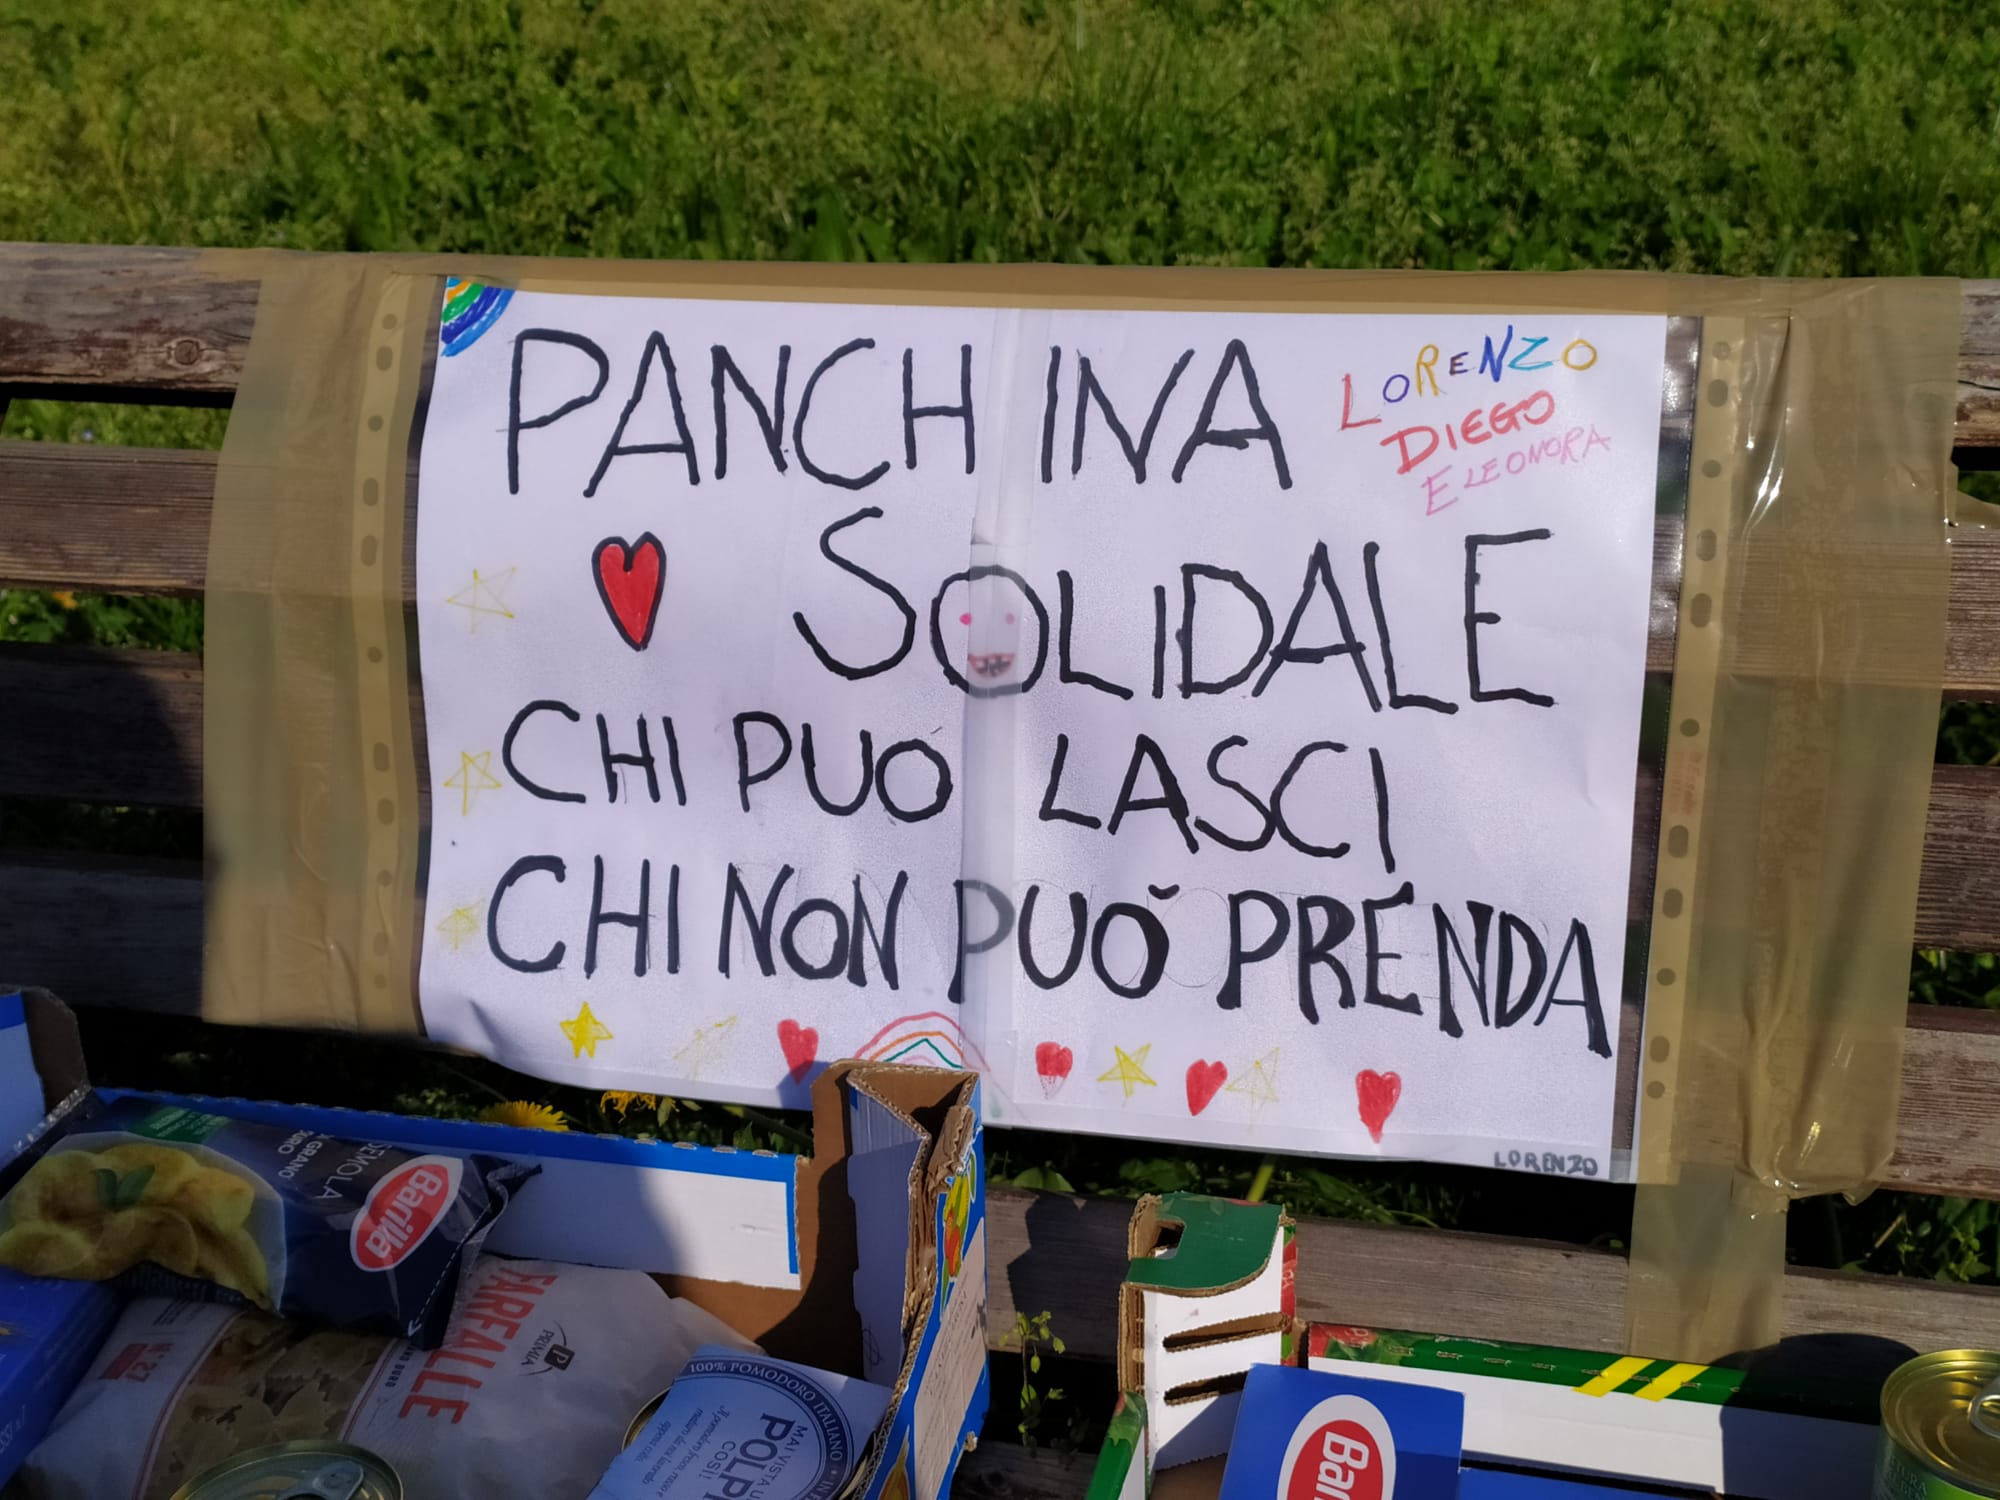 PANCHINA
LORENZO
DIEGO
ELEONORA
SOLIDALE
CHI PUÓ LASCI
CHI NON PUÒ PRENDA
LORENZO
SEMOLA
GRANO
DURO
Barilla
FARFALLE
N° 27
PRIMIA
100% POMODORO ITALIANO
MAI VISTA
COSÌ!